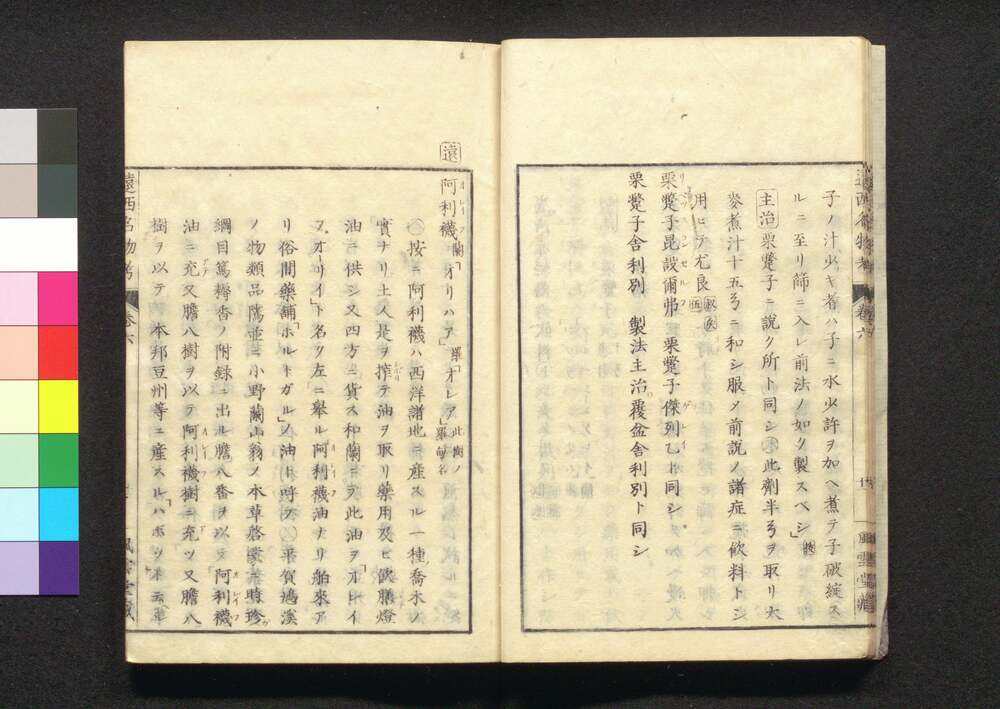 子ノ汁少キ者ハ子ニ水少許ヲ加ヘ煮テ子破綻ス
ルニ至リ篩ニ入レ前法ノ如ク製スベシ
主治 栗鼈子ニ說ク所ト同シ 此劑半弓ヲ取リ大
麥煮汁十五弓ニ和シ服ノ前說ノ諸症ニ飮料トシ
用ヒテ尤良
栗鼈子昆設爾弗 栗鼈子傑列乙ト同シ
栗鼈子舍利別 製法主治覆盆舍利別ト同シ
遠西名物考
卷六
十
風雲堂藏
遠
阿利襪 蘭「オリハア」羅「オレア」此樹ノ羅甸名
按ニ阿利襪ハ西洋諸地ニ産スル一種喬木ノ
實ナリ土人是ヲ搾テ油ヲ取リ藥用及ヒ飮膳燈
油ニ供シ又四方ニ貨ス和蘭ニテ此油ヲ「オレイ
フオーリイ」ト名ク左ニ舉ル阿利襪油ナリ舶來ア
リ俗間藥舖「ホルトガル」ノ油ト呼フ 平賀鳩溪
ノ物類品隲並ニ小野蘭山翁ノ本草啓蒙ニ時珍
綱目篤耨香ノ附録ニ出ル膽八香ヲ以テ阿利襪
油ニ充又膽八樹ヲ以テ阿利襪樹ニ充ツ又膽八
樹ヲ以テ 本邦豆州等ニ産スル「ハボソ」木
遠西名物考
卷六
風雲堂藏